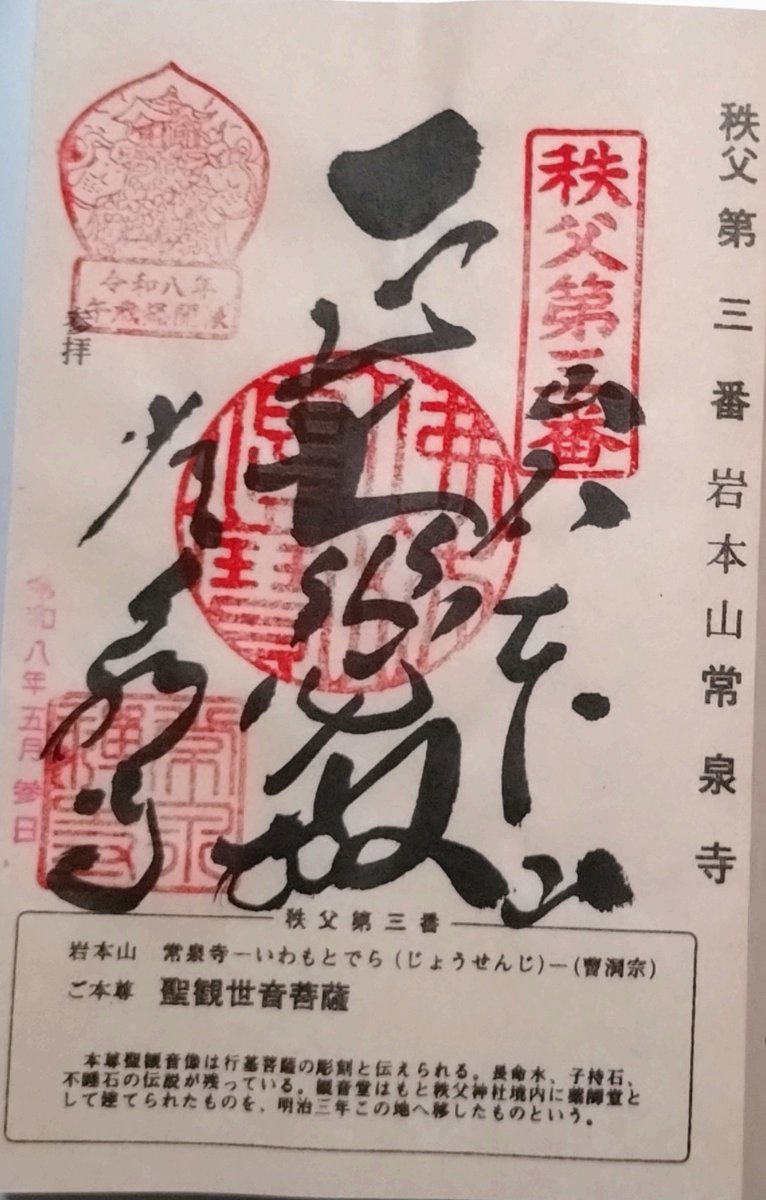 秩父第三番 岩本山 常泉寺
秩父第三番
岩本山
常泉寺
令和八年
午歳総開帳
参拝
令和八年五月参日
佛法僧寳
秩父第三番
岩本山 常泉寺―いわもとでら(じょうせんじ)―(曹洞宗)
ご本尊 聖観世音菩薩
本尊聖観音像は行基菩薩の彫刻と伝えられる。長命水、子持石、
不睡石の伝説が残っている。観音堂はもと秩父神社境内に薬師堂と
して建てられたものを、明治三年この地へ移したものという。